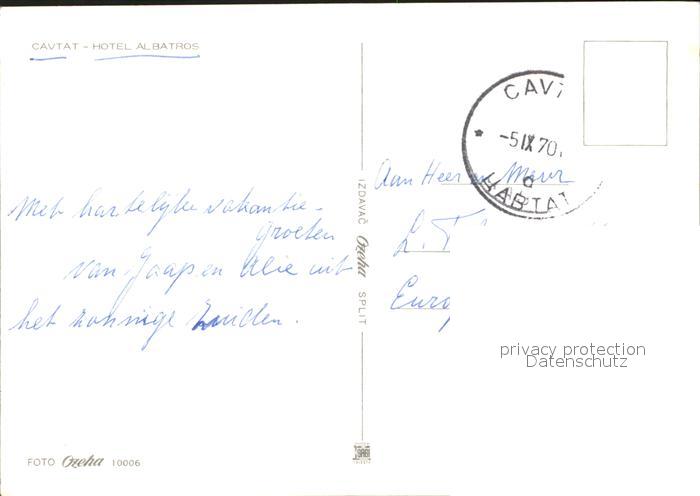 CAVTAT - HOTEL ALBATROS
Met hartelijke vakantie-
groeten
van Jaap en Alie uit
het zonnige zuiden.
FOTO Ozeha 10006
IZDAVAČ Ozeha SPLIT
CAVT
-5 IX 70.
d
ЦАВТАТ
Aan Heer en Mevr
L. T
Euro
privacy protection
Datenschutz